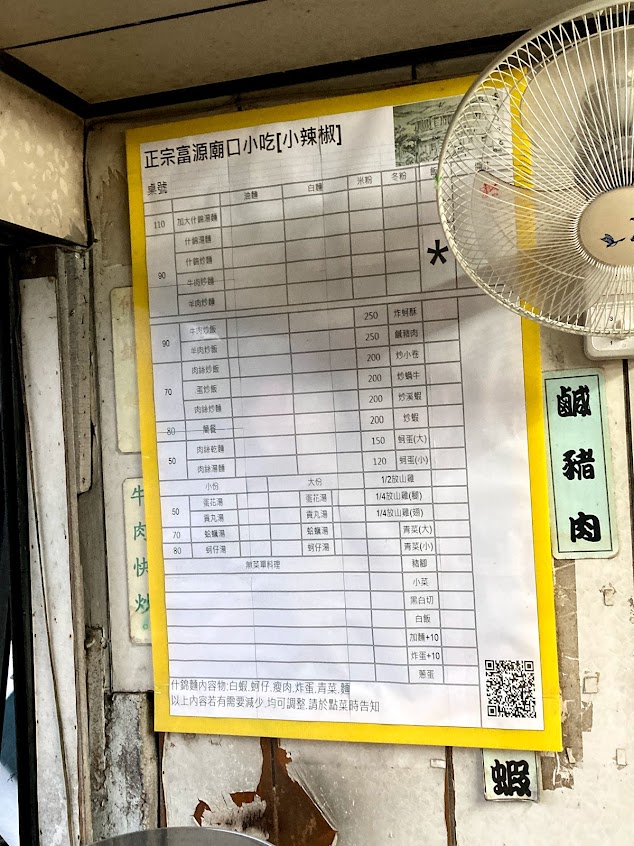 正宗富源廟口小吃[小辣椒]
桌號
油麵 白麵 米粉 冬粉
110 加大什錦湯麵
什錦湯麵
90 什錦炒麵
牛肉炒麵
羊肉炒麵
*
90 牛肉炒飯 250 炸蚵酥
羊肉炒飯 250 鹹豬肉
肉絲炒飯 200 炒小卷
70 蛋炒飯 200 炒蝸牛
肉絲炒麵 200 炒溪蝦
80 簡餐 200 炒蝦
50 肉絲乾麵 150 蚵蛋(大)
肉絲湯麵 120 蚵蛋(小)
小份 大份 1/2放山雞
50 蛋花湯 蛋花湯 1/4放山雞(腳)
貢丸湯 貢丸湯 1/4放山雞(翅)
70 蛤蠣湯 蛤蠣湯 青菜(大)
80 蚵仔湯 蚵仔湯 青菜(小)
無菜單料理 豬腳
小菜
黑白切
白飯
加麵+10
炸蛋+10
蔥蛋
什錦麵內容物:白蝦,蚵仔,瘦肉,炸蛋,青菜,麵
以上內容若有需要減少,均可調整,請於點菜時告知
鹹豬肉
牛肉快炒
蝦